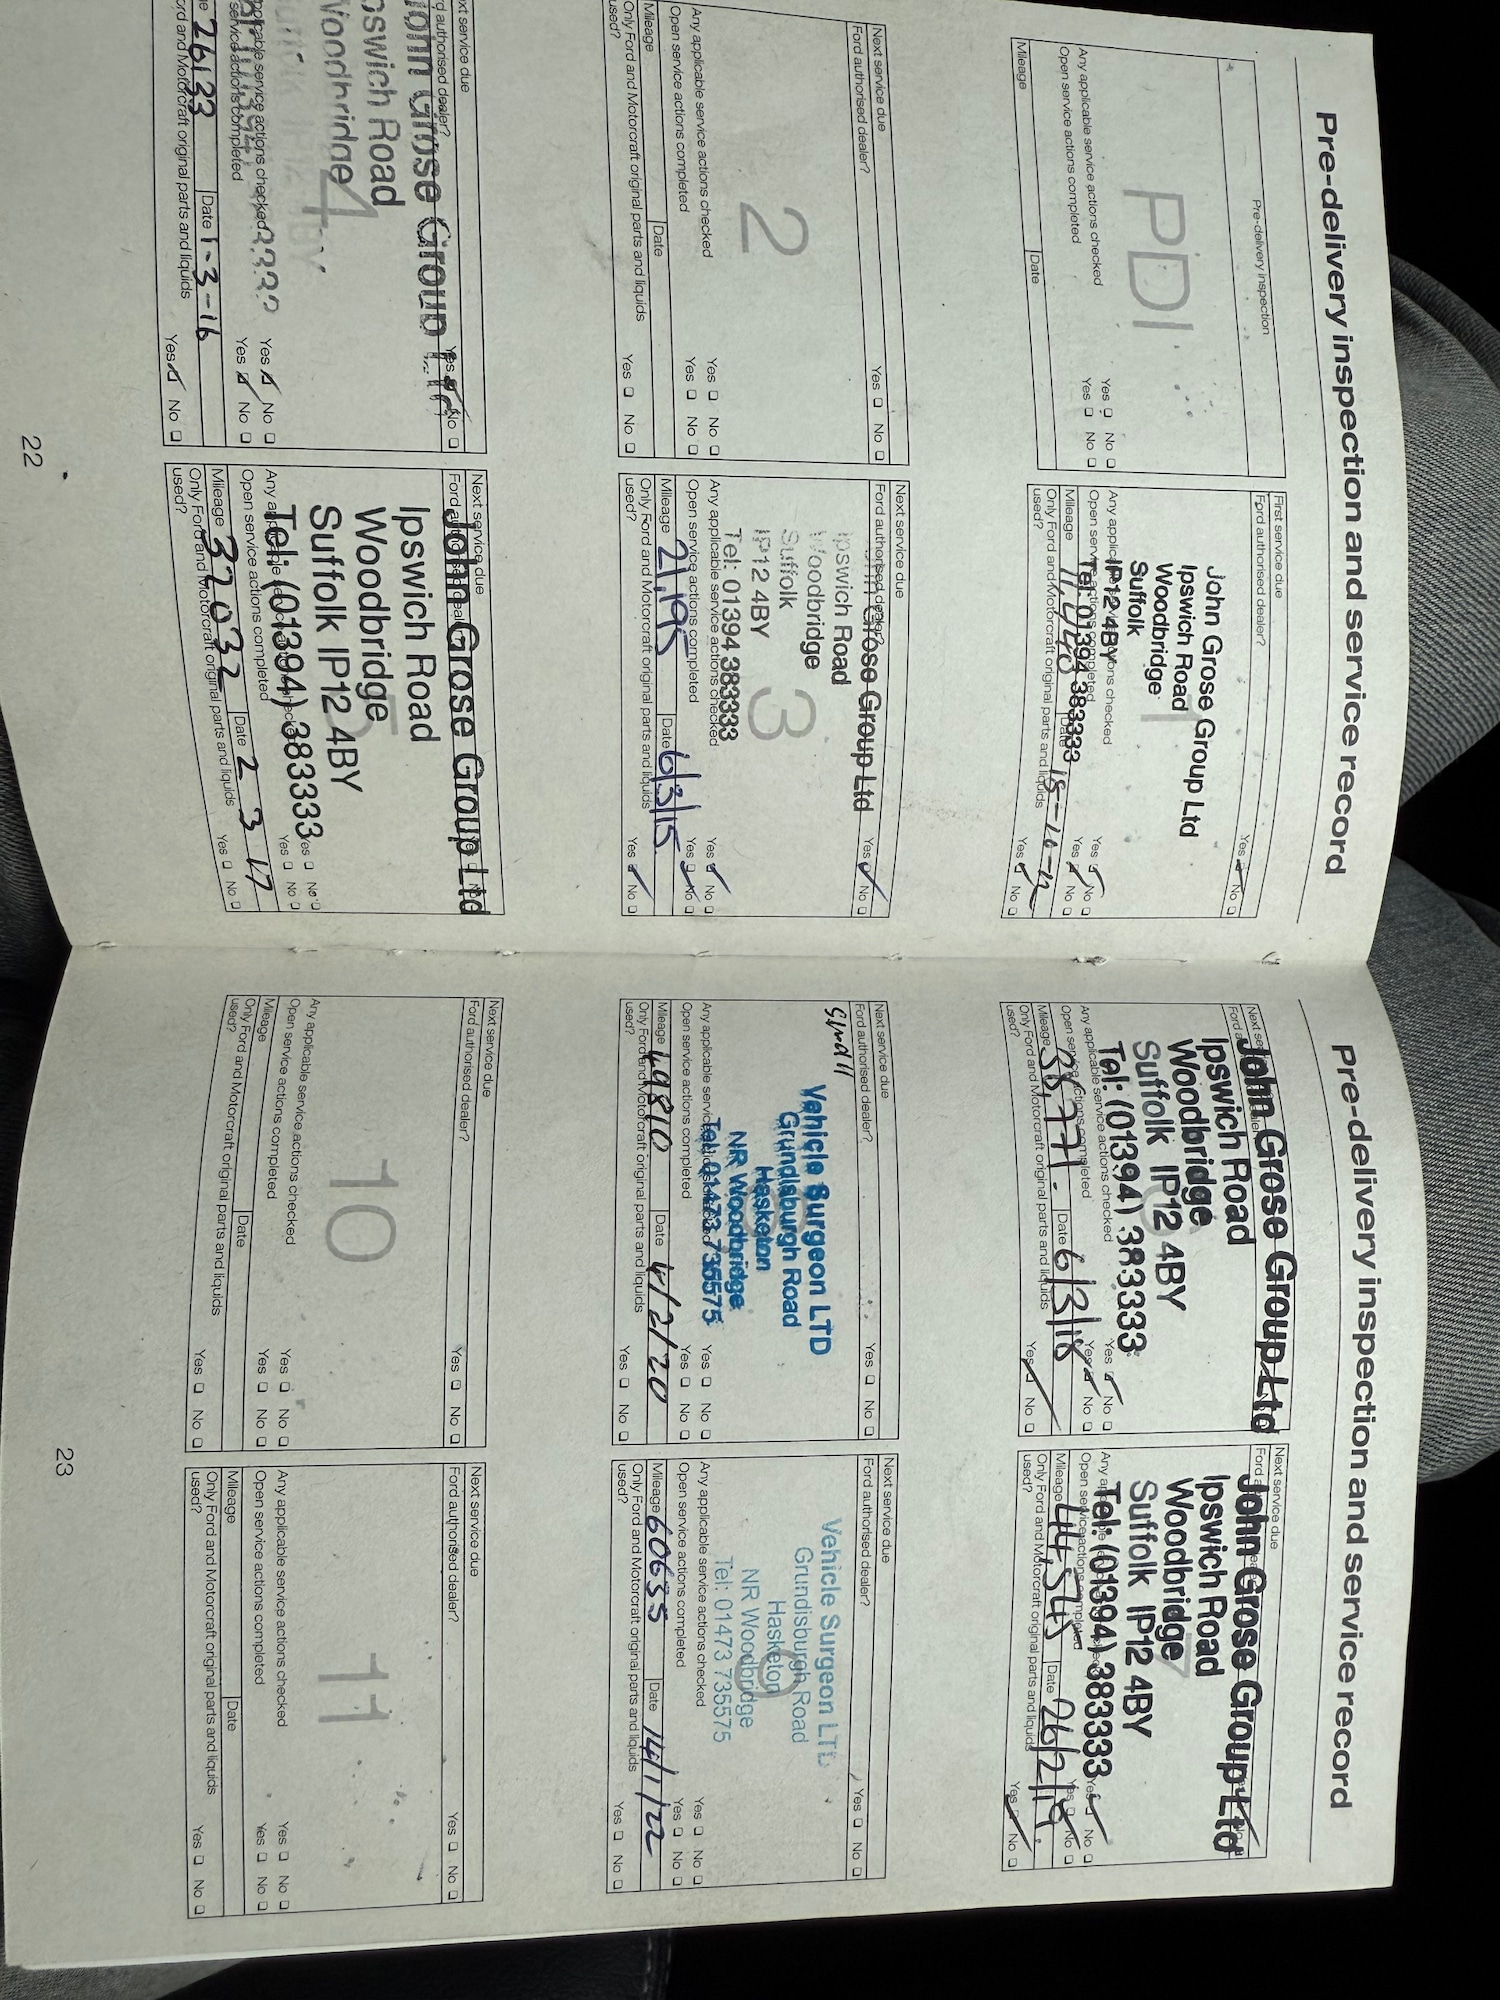 Pre-delivery inspection and service record
Pre-delivery inspection
PDI
Any applicable service actions checked Yes No
Open service actions completed Yes No
Mileage Date
First service due
Ford authorised dealer? Yes No
John Grose Group Ltd
Ipswich Road
Woodbridge
Suffolk
IP12 4BY
Tel: 01394 383333
1
Any applicable service actions checked Yes No
Open service actions completed Yes No
Mileage Date
Only Ford and Motorcraft original parts and liquids used? Yes No
Next service due
Ford authorised dealer? Yes No
2
Any applicable service actions checked Yes No
Open service actions completed Yes No
Mileage Date
Only Ford and Motorcraft original parts and liquids used? Yes No
Next service due
Ford authorised dealer? Yes No
John Grose Group Ltd
Ipswich Road
Woodbridge
Suffolk
IP12 4BY
Tel: 01394 383333
3
Any applicable service actions checked Yes No
Open service actions completed Yes No
Mileage 21,195 Date 6/3/15
Only Ford and Motorcraft original parts and liquids used? Yes No
ext service due
rd authorised dealer? Yes No
John Grose Group
pswich Road
Woodbridge
4
applicable service actions checked Yes No
service actions completed Yes No
26133 Date 1-3-16
ord and Motorcraft original parts and liquids Yes No
Next service due
Ford authorised dealer?
John Grose Group Ltd
Ipswich Road
Woodbridge
Suffolk IP12 4BY
Tel: (01394) 383333
5
Any applicable service actions checked Yes No
Open service actions completed Yes No
Mileage 32032 Date 2 3 17
Only Ford and Motorcraft original parts and liquids used? Yes No
22
Pre-delivery inspection and service record
Next service due
Ford authorised dealer?
John Grose Group Ltd
Ipswich Road
Woodbridge
Suffolk IP12 4BY
Tel: (01394) 383333
Any applicable service actions checked Yes No
Open service actions completed Yes No
Mileage 38,771. Date 6/3/18
Only Ford and Motorcraft original parts and liquids used? Yes No
Next service due
Ford authorised dealer?
John Grose Group Ltd
Ipswich Road
Woodbridge
Suffolk IP12 4BY
Tel: (01394) 383333
7
Any applicable service actions checked Yes No
Open service actions completed Yes No
Mileage 44,545 Date 26/2/19.
Only Ford and Motorcraft original parts and liquids used? Yes No
Next service due
Ford authorised dealer? Yes No
Vehicle Surgeon LTD
Grundisburgh Road
Hasketon
NR Woodbridge
Tel: 01473 735575
8
Any applicable service actions checked Yes No
Open service actions completed Yes No
Mileage 49810 Date 4/2/20
Only Ford and Motorcraft original parts and liquids used? Yes No
Next service due
Ford authorised dealer? Yes No
Vehicle Surgeon LTD
Grundisburgh Road
Hasketon
NR Woodbridge
Tel: 01473 735575
9
Any applicable service actions checked Yes No
Open service actions completed Yes No
Mileage 60655 Date 14/1/22
Only Ford and Motorcraft original parts and liquids used? Yes No
Next service due
Ford authorised dealer? Yes No
10
Any applicable service actions checked Yes No
Open service actions completed Yes No
Mileage Date
Only Ford and Motorcraft original parts and liquids used? Yes No
Next service due
Ford authorised dealer? Yes No
11
Any applicable service actions checked Yes No
Open service actions completed Yes No
Mileage Date
Only Ford and Motorcraft original parts and liquids used? Yes No
23